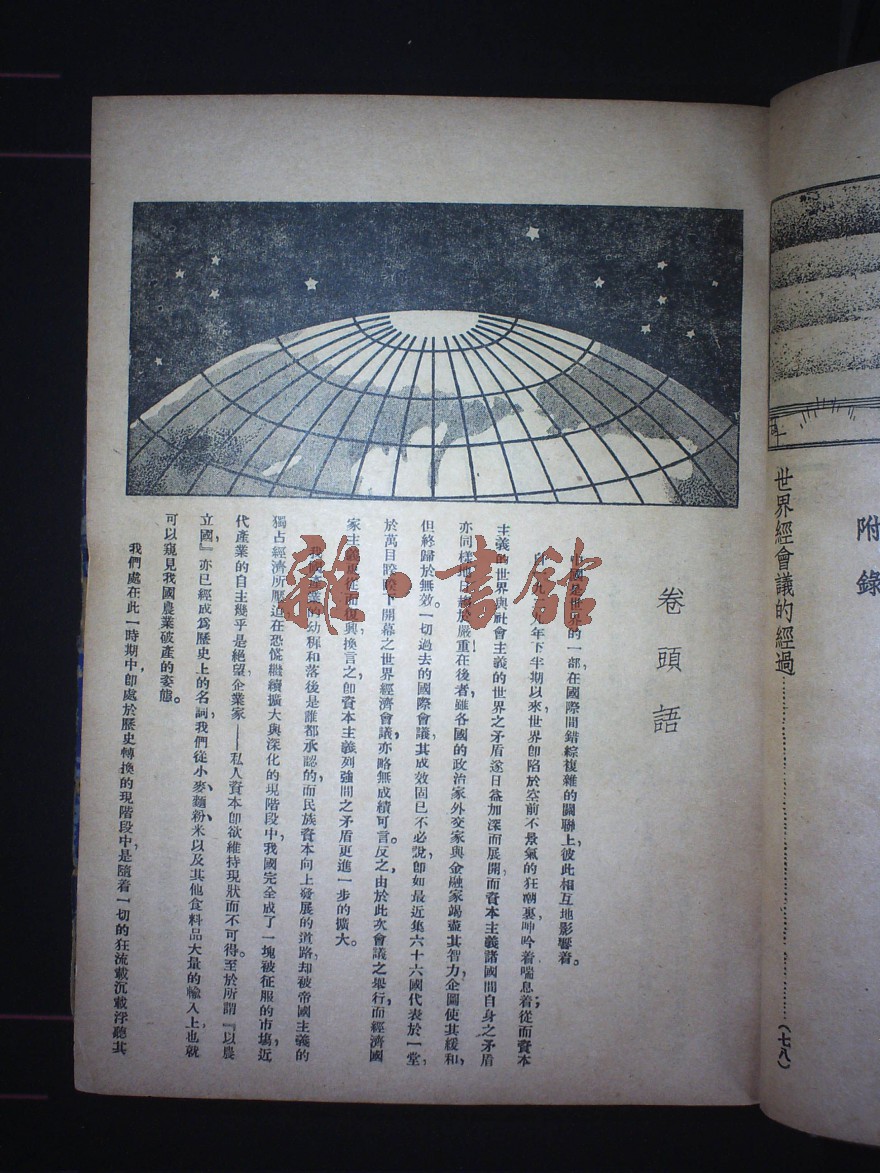 附錄
世界經會議的經過……………………………(七八)
卷頭語
中國是世界的一部在國際間錯綜複雜的關聯上,彼此相互地影響着。
自一九二九年下半期以來世界卽陷於空前不景氣的狂潮裏呻吟着喘息着;從而資本
主義的世界與社會主義的世界之矛盾遂日益加深而展開,而資本主義諸國間自身之矛盾
亦同樣地日趨於嚴重在後者,雖各國的政治家外交家與金融家竭盡其智力,企圖使其緩和,
但終歸於無效一切過去的國際會議,其成效固已不必說,卽如最近集六十六國代表於一堂,
於萬目睽睽下開幕之世界經濟會議,亦略無成績可言。反之,由於此次會議之舉行,而經濟國
家主義更從而復興換言之,卽資本主義列強間之矛盾更進一步的擴大。
我國產業的幼稚和落後是誰都承認的,而民族資本向上發展的道路,却被帝國主義的
獨占經濟所壓迫,在恐慌繼續擴大與深化的現階段中,我國完全成了一塊被征服的市塲,近
代產業的自主幾乎是絕望,企業家——私人資本卽欲維持現狀而不可得。至於所謂『以農
立國』亦已經成爲歷史上的名詞,我們從小麥、麵粉、米以及其他食料品大量的輸入上,也就
可以窺見我國農業破產的姿態。
我們處在此一時期中,卽處於歷史轉換的現階段中,是隨着一切的狂流載沉載浮,聽其
雜·書館